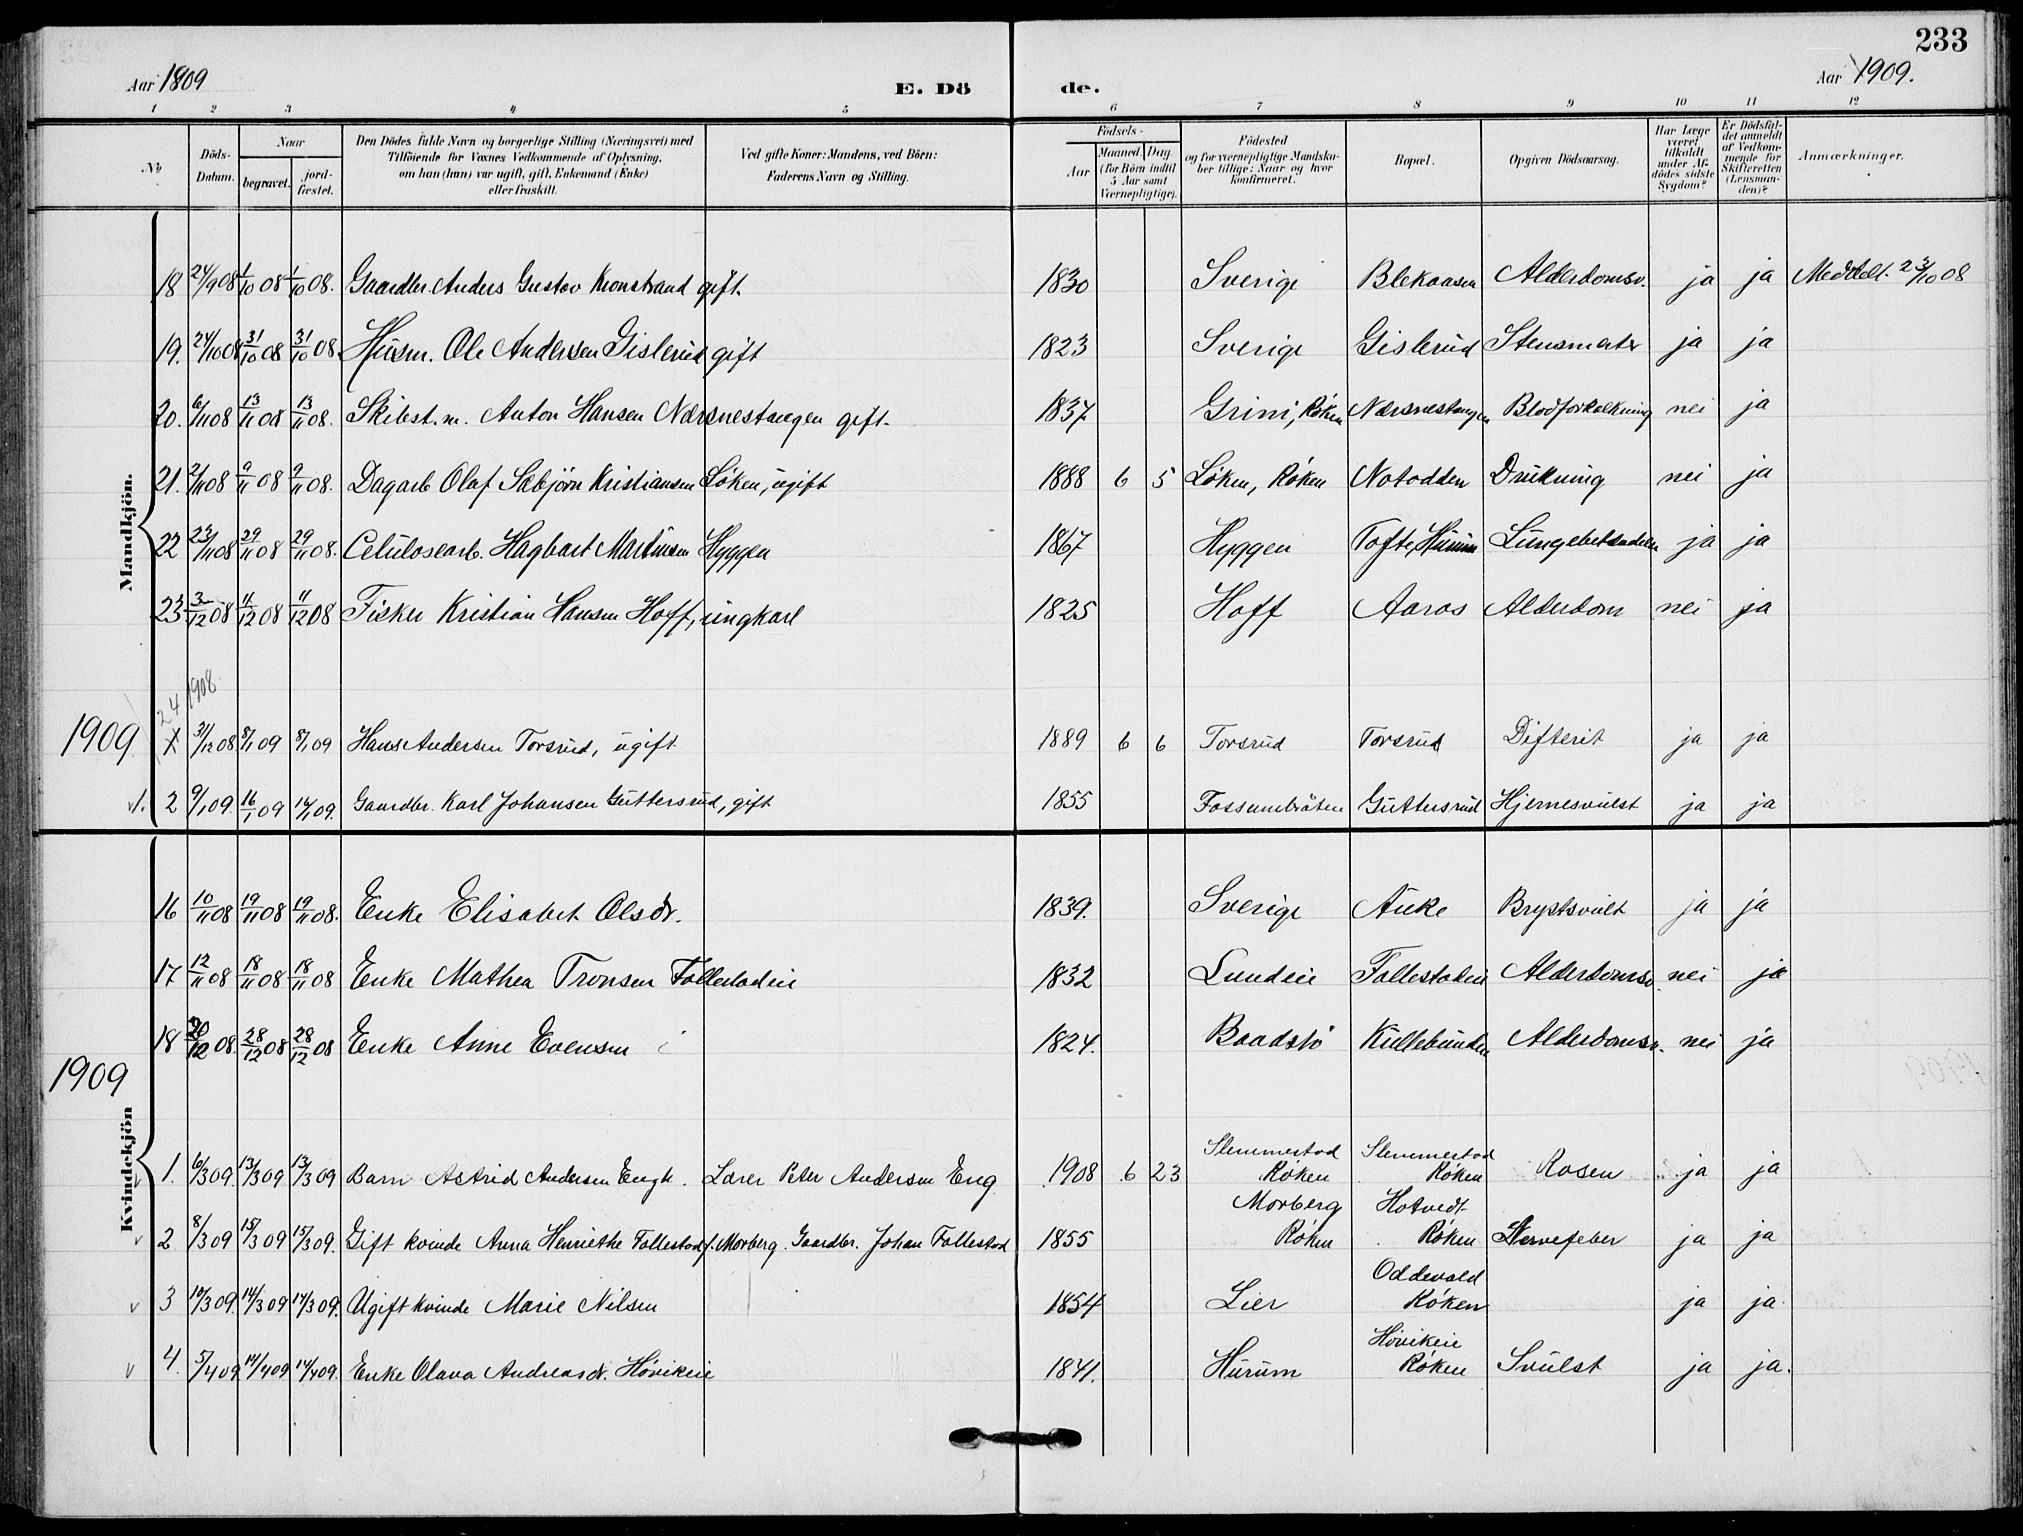 233
Aar 1809 E. Dö de. Aar 1909.
1 2 3 4 5 6 7 8 9 10 11 12
No
Döds-Datum.
Naar
begravet.
jord-fæstet.
Den Dödes fulde Navn og borgerlige Stilling (Næringsvei) med
Tilföiende for Voxnes Vedkommende af Oplysning,
om han (hun) var ugift, gift, Enkemand (Enke)
eller fraskilt.
Ved gifte Koner: Mandens, ved Börn:
Faderens Navn og Stilling.
Födsels-
Aar
Maaned. Dag.
(for Börn indtil
5 Aar samt
Værnepligtige).
Födested
og for værnepligtige Mandska-
ber tillige: Naar og hvor
konfirmeret.
Bopæl.
Opgiven Dödsaarsag.
Har Læge
været
tilkaldt
under Af-
dödes sidste
Sygdom?
Er Dödsfal-
det anmeldt
af Vedkom-
mende for
Skifteretten
(Lensman-
den)?
Anmærkninger.
Mandkjön.
18 24/9 08 1/10 08 1/10 08. Gaardbr. Anders Gustav Kronstrand gift. 1830 Sverige Blekaasen Alderdomsv. ja ja Meddelt. 23/10 08
19. 24/10 08 31/10 08 31/10 08. Husm. Ole Andersen Gislerud gift 1823 Sverige Gislerud Stensmerter ja ja
20. 6/11 08 13/11 08 13/11 08. Skibst.m. Anton Hansen Nærsnestangen gift. 1837 Grini, Røken Nærsnestangen Blodforkalkning nei ja
21. 2/11 08 9/11 08 9/11 08. Dagarb Olaf Sæbjørn Kristiansen Løken, ugift 1888 6 5 Løken, Røken Notodden Drukning nei ja
22 23/11 08 29/11 08 29/11 08. Celulosearb. Hagbart Martinsen Hyggen 1867 Hyggen Tofte, Hurum Lungebetændelse ja ja
23 3/12 08 11/12 08 11/12 08 Fisker Kristian Hansen Hoff, ungkarl 1825 Hoff Aaros Alderdom nei ja
24 1908
1909 1 31/12 08 8/1 09 8/1 09 Hans Andersen Torsrud, ugift 1889 6 6 Torsrud Torsrud Difterit ja ja
1. 2 9/1 09. 16/1 09 16/1 09. Gaardbr. Karl Johansen Guttersrud, gift 1855 Fossumbråten Guttersrud Hjernesvulst ja ja
Kvindekjön
16 10/11 08 19/11 08 19/11 08. Enke Elisabet Olsdr. 1839. Sverige Auke Brystsvult ja ja
17 12/11 08 18/11 08 18/11 08 Enke Mathea Tronsen Follestadeie 1832 Lundeie Follestadeie Alderdomsv. nei ja
18 20/12 08. 28/12 08 28/12 08 Enke Anne Evensen 1824. Baadstø Kullebunden Alderdomsv. nei ja
1909
1. 6/3 09 13/3 09 13/3 09 Barn Astrid Andersen Engh. Lærer Peter Andersen Eng 1908 6 23 Slemmestad Røken Slemmestad Røken Rosen ja ja
2 8/3 09 15/3 09 15/3 09. Gift kvinde Anna Henriethe Follestad f. Morberg. Gaardbr. Johan Follestad 1855 Morberg Røken Hotvedt Røken Nervefeber ja ja
3 10/3 09. 14/3 09 14/3 09. Ugift kvinde Marie Nilsen 1854 Lier Oddevald Røken ja ja
4. 5/4 09 14/4 09 14/4 09. Enke Olava Andreasdr. Høvikeie 1841. Hurum Høvikeie Røken Svulst ja ja.